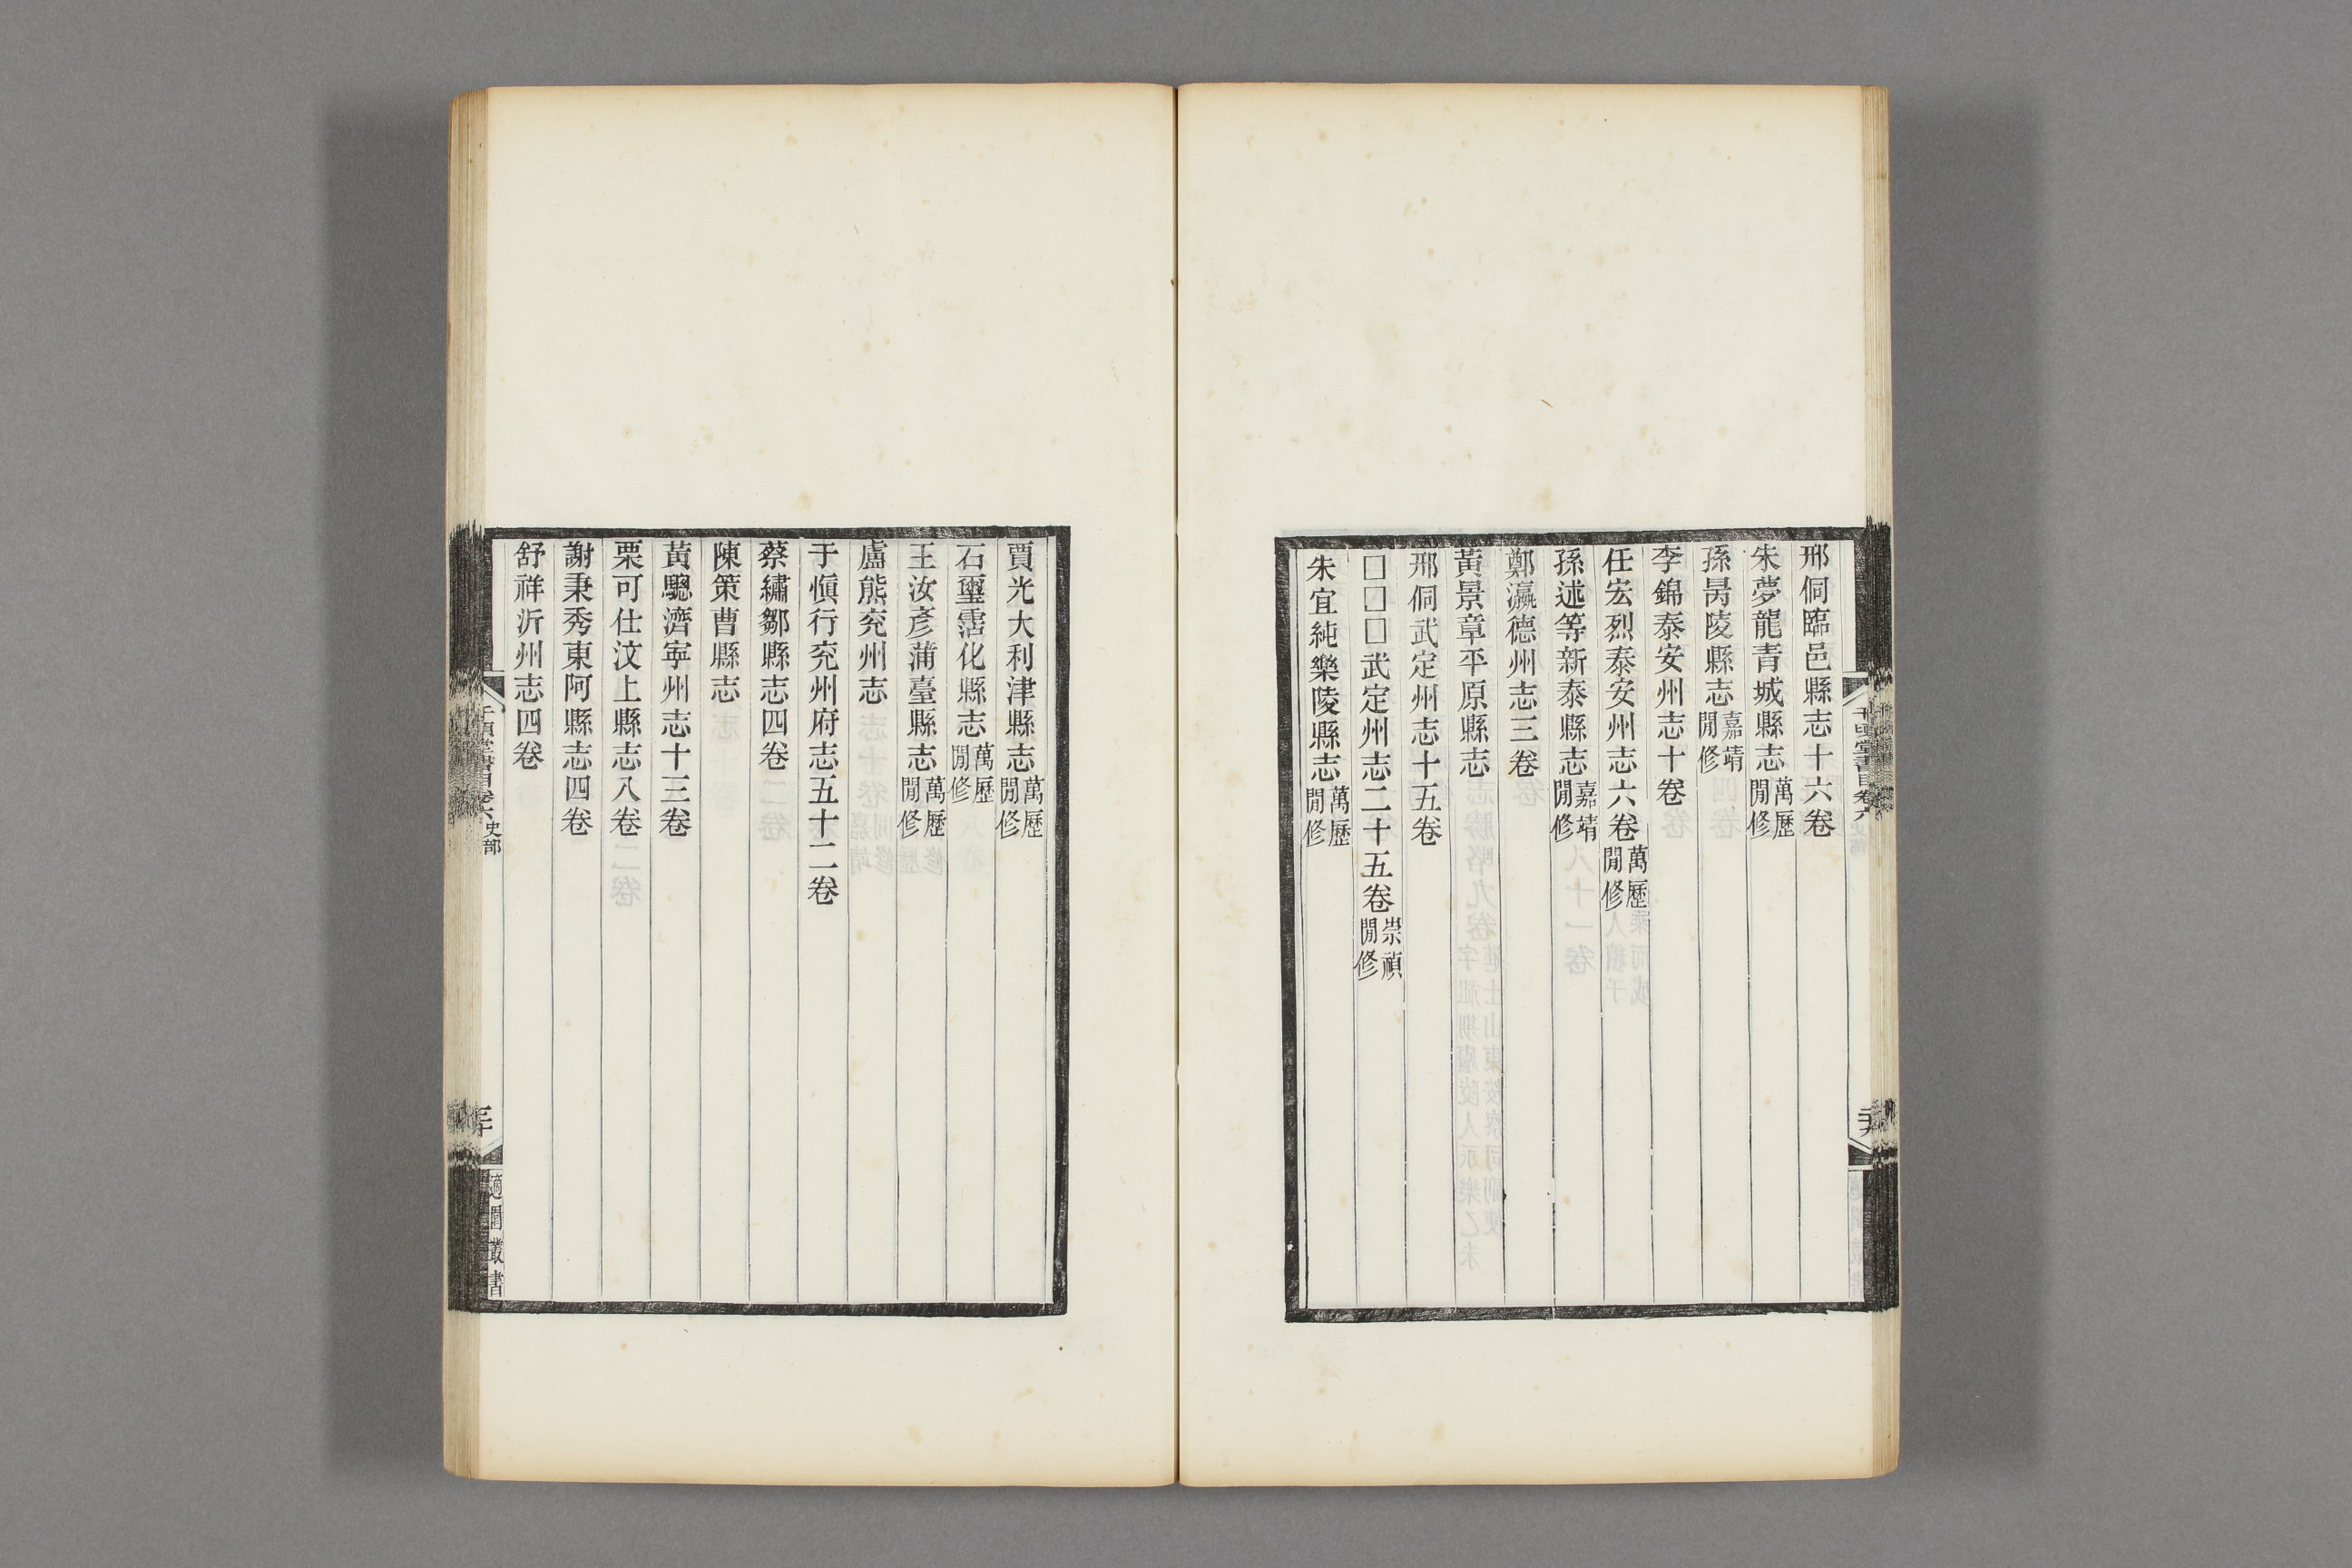 邢侗臨邑縣志十六卷
朱夢龍青城縣志萬歷閒修
孫昺陵縣志嘉靖閒修
李錦泰安州志十卷
任宏烈泰安州志六卷萬歷閒修
孫述等新泰縣志嘉靖閒修
鄭瀛德州志三卷
黃景章平原縣志
邢侗武定州志十五卷
□□□武定州志二十五卷崇禎閒修
朱宜純樂陵縣志萬歷閒修
賈光大利津縣志萬歷閒修
石璽霑化縣志萬歷閒修
王汝彥蒲臺縣志萬歷閒修
盧熊兖州志
于慎行兖州府志五十二卷
蔡繡鄒縣志四卷
陳策曹縣志
黃驄濟寧州志十三卷
栗可仕汶上縣志八卷
謝秉秀東阿縣志四卷
舒祥沂州志四卷
千頃堂書目卷六 史部
三十
適園叢書